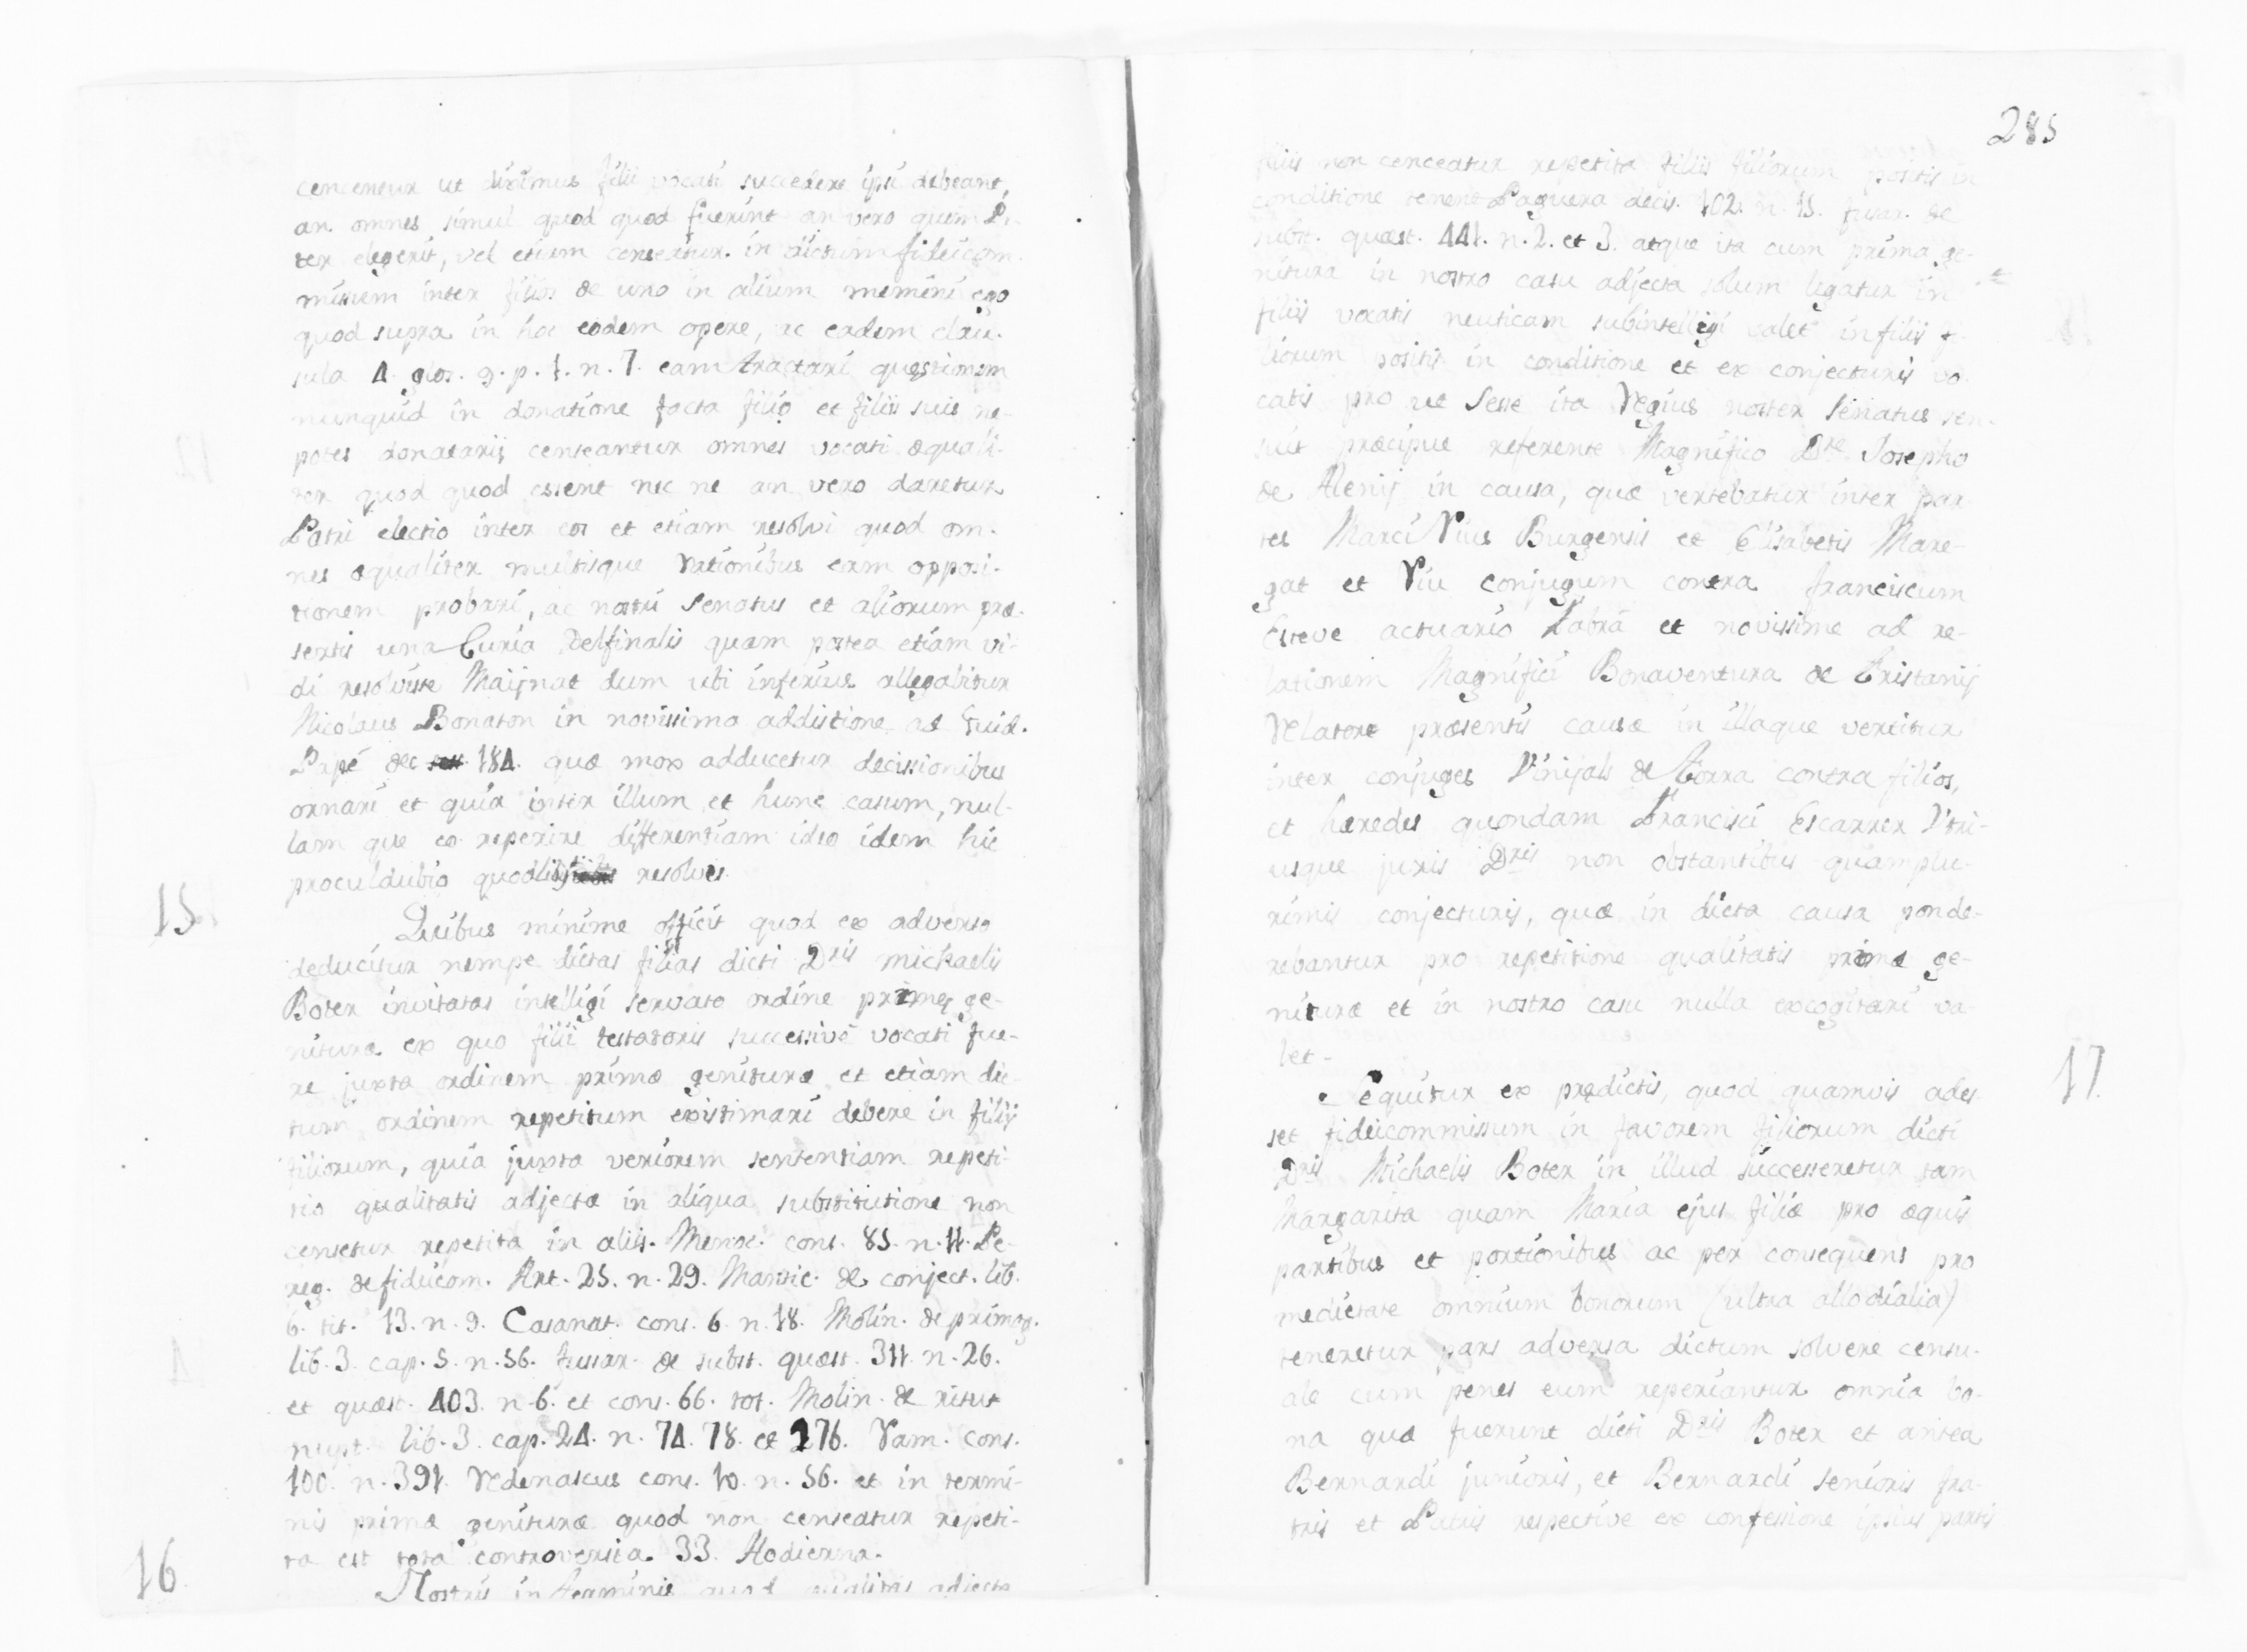 cencentur ut diximus filii vocati succedere ipsi debeant,
an omnes simul quod quod fuerint an vero quem Pa-
ter elegerit, vel etiam censeatur in dictum fideicom-
missem inter filios de uno in alium memini ego
quod supra in hoc eodem opere, ac eadem clau-
sula 4 glos. 9. p. 1. n. 7. eam tractari questionem
nunquid in donatione facta filio et filiis suis ne-
potes donatarij censeantur omnes vocati æquali-
ter quod quod essent nec ne an vero daretur
Patri electio inter eos et etiam resolvi quod om-
nes æqualiter multisque rationibus eam opposi-
tionem probari, ac nostri Senatus et aliorum præ-
sertis una Curia Delfinalis quam postea etiam vi-
di resolvisse Maijnat dum ubi inferius allegabitur
Nicolaus Bonaton in novissima additione ad Guid.
Papé dec 184. quæ mox adducetur decissionibus
ornari et quia inter illum et hunc casum, nul-
lam que eo reperire differentiam ideo idem hic
proculdubio resolves.
15
Quibus minime officit quod ex adverso
deducitur nempe dictas filias dicti Dris michaelis
Boter invitatas intelligi servato ordine primæ ge-
nituræ ex quo filii testatoris successivé vocati fue-
re juxta ordinem primæ genituræ et etiam dic-
tum ordinem repetitum existimari debere in filiis
filiorum, quia juxta veriorem sententiam repeti-
tio qualitatis adjectæ in aliqua substitutione non
censetur repetita in aliis. Menoc. cons. 85. n. 11. Pe-
reg. de fideicom. Art. 25. n. 29. Mantic. de conject. lib.
6. tit. 13. n. 9. Casanat. cons. 6 n. 18. Molin. de primog.
lib. 3. cap. 5. n. 56. fussar. de subst. quæst. 311. n. 26.
et quæst. 403. n. 6. et cons. 66. tot. Molin. de ritut
nupt. lib. 3. cap. 24. n. 74. 78. et 276. Ram. cons.
100. n. 391. Redenascus cons. 10. n. 56. et in termi-
nis primæ genituræ quod non censeatur repeti-
ta est tota controversia 33. Hodierna.
16
Nostris in terminis quod qualitas adjecta
285
filiis non cenceatur repetita filiis filiorum positis in
conditione tenent Paguera decis. 102. n. 15. fusar. de
subst. quæst. 441. n. 2. et 3. atque ita cum prima ge-
nitura in nostro casu adjecta solum legatur in
filiis vocatis neuticam subintelligi valet in filiis f-
liorum positis in conditione et ex conjecturis vo-
catis pro ut Sesse ita Regius noster Senatus sen-
suit præcipue referente Magnifico Dre Josepho
de Alenij in causa, quæ vertebatur inter par
tes Marci Rius Burgensis et Elisabetis Mare-
gat et Riu conjugum contra franciscum
Esteve actuario Labrá et novissime ad re-
lationem Magnifici Bonaventura de Tristanij
Relatore præsentis causæ in illaque vertitur
inter conjuges Vinijals de Torra contra filios,
et hæredes quondam Francisci Escarrer Utri-
usque juris Dris non obstantibus quamplu-
rimis conjecturis, quæ in dicta causa ponde-
rebantur pro repetitione qualitatis primæ ge-
nituræ et in nostro casu nulla excogitari va-
let-
17.
Sequitur ex predictis, quod quamvis ades-
set fideicommissum in favorem filiorum dicti
Dris Michaelis Boter in illud successeretur tam
Margarita quam Maria ejus filiæ pro æquis
partibus et portionibus ac per consequens pro
medietate omnium bonorum (ultra allodialia)
teneretur pars adversa dictum solvere censu-
ale cum penes eum reperiantur omnia bo-
na quæ fuerunt dicti Dris Boter et antea
Bernardi junioris, et Bernardi senioris fra-
tris et Patris respective ex confessione ipsius partis